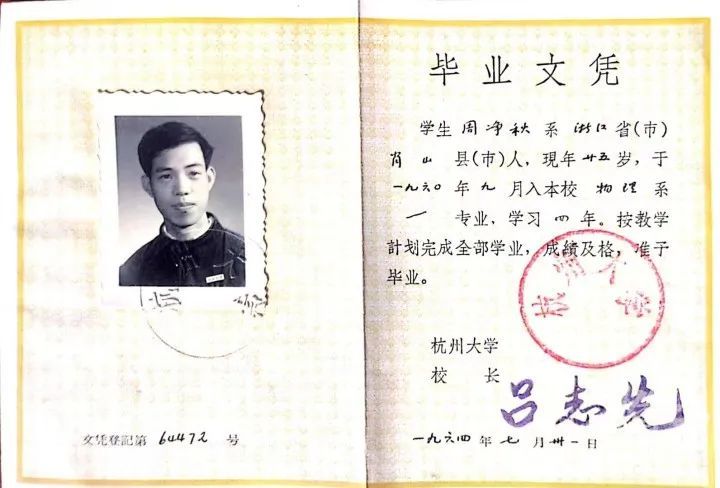 文凭登記第 64472 号
毕业文凭
学生周净秋系浙江省(市)
肖山县(市)人，現年廿五岁，于
一九六〇年九月入本校物理系
一 专业，学习四年。按教学
計划完成全部学业，成績及格，准予
毕业。
杭州大学
校 长 吕志先
一九六四年七月卅一日
杭州大學